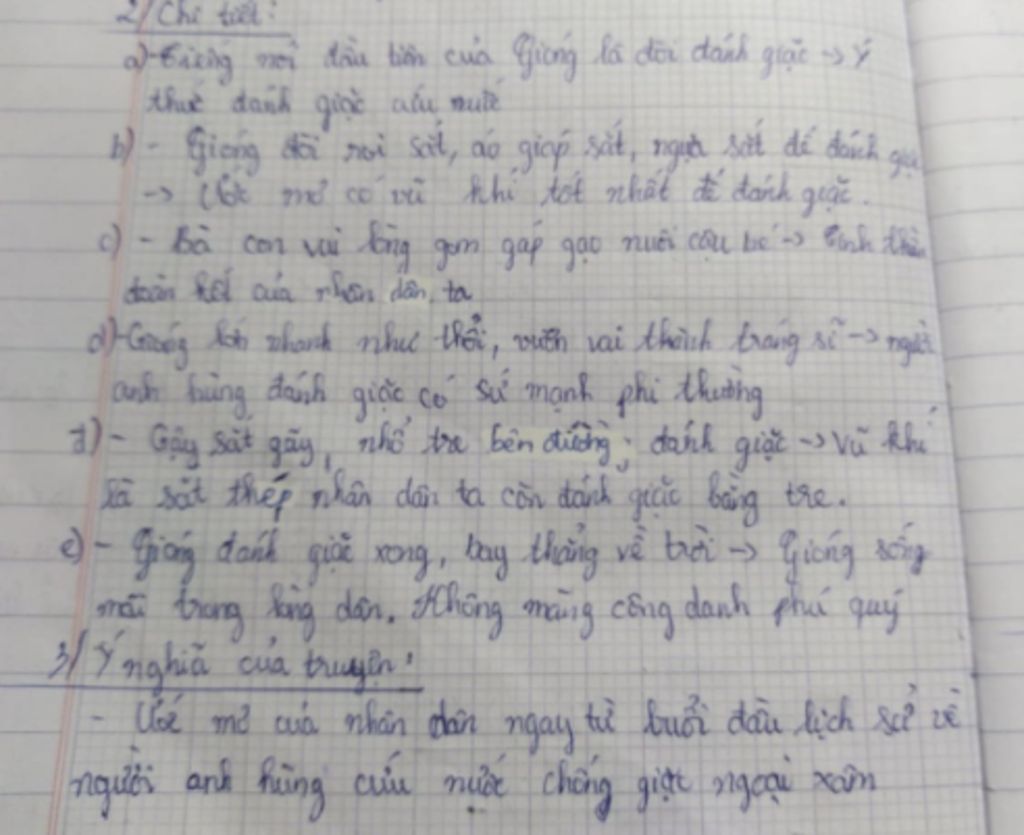 2/ Chi tiết:
a) - Tiếng nói đầu tiên của Gióng là đòi đánh giặc -> Ý
thức đánh giặc cứu nước
b) - Gióng đòi roi sắt, áo giáp sắt, ngựa sắt để đánh giặc
-> Ước mơ có vũ khí tốt nhất để đánh giặc.
c) - Bà con vui lòng gom góp gạo nuôi cậu bé -> Tinh thần
đoàn kết của nhân dân ta
d) - Gióng lớn nhanh như thổi, vươn vai thành tráng sĩ -> người
anh hùng đánh giặc có sứ mạnh phi thường
đ) - Gậy sắt gãy, nhổ tre bên đường, đánh giặc -> Vũ khí
là sắt thép nhân dân ta còn đánh giặc bằng tre.
e) - Gióng đánh giặc xong, bay thẳng về trời -> Gióng sống
mãi trong lòng dân. Không màng công danh phú quý
3/ Ý nghĩa của truyện:
- Ước mơ của nhân dân ngay từ buổi đầu lịch sử về
người anh hùng cứu nước chống giặc ngoại xâm